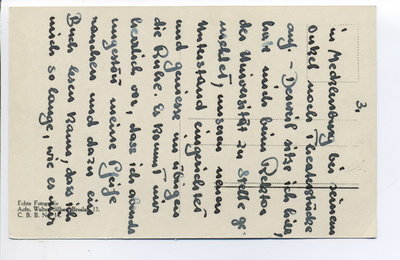 3.
in Mecklenburg bei seinem
Onkel noch Theaterstücke
auf – Derweil sitze ich hier,
hab mich beim Rektor
der Universität zur Stelle ge-
meldet, unseren neuen
Unterstand eingerichtet
und geniesse im übrigen
die Ruhe. Es kommt mir
herrlich vor, dass ich abends
ungestört meine Pfeife
rauchen und dazu ein
Buch lesen kann, dass ich
mich so lange, wie es mir
Echte Fotografie
Aufn. Walter Breslau 13.
C. B. B. Nr. 14.